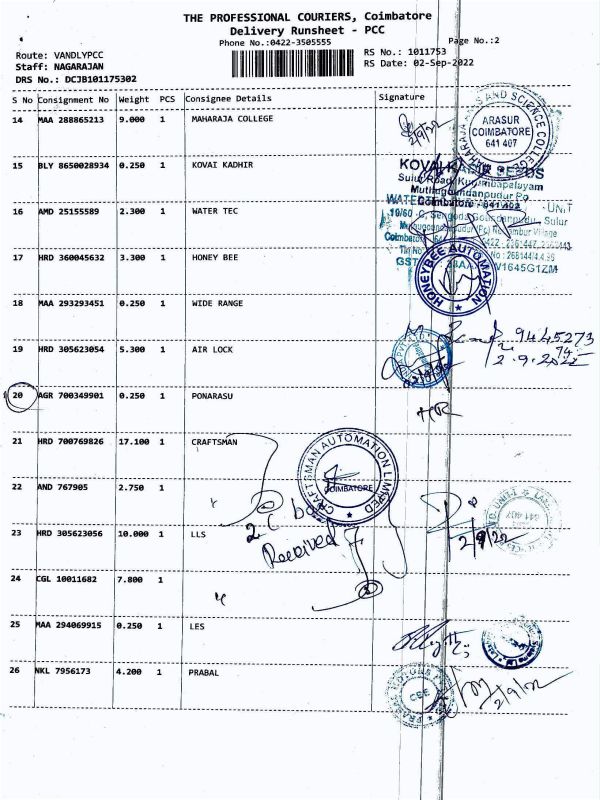 THE PROFESSIONAL COURIERS, Coimbatore
Delivery Runsheet - PCC
Phone No.:0422-3505555
Page No.:2
Route: VANDLYPCC
RS No.: 1011753
Staff: NAGARAJAN
RS Date: 02-Sep-2022
DRS No.: DCJB101175302
S No Consignment No Weight PCS Consignee Details Signature
14 MAA 288865213 9.000 1 MAHARAJA COLLEGE
2/9/22
ARASUR
COIMBATORE
641 407
15 BLY 8650028934 0.250 1 KOVAI KADHIR
Sulur Road, Kurumbapalayam
Muthugoundanpudur Po
Coimbatore - 641 402
16 AMD 25155589 2.300 1 WATER TEC
17 HRD 360045632 3.300 1 HONEY BEE
HONEYBEE AUTOMATION
18 MAA 293293451 0.250 1 WIDE RANGE
19 HRD 305623054 5.300 1 AIR LOCK
9445273
2.9.2022
20 AGR 700349901 0.250 1 PONARASU
21 HRD 700769826 17.100 1 CRAFTSMAN
CRAFTSMAN AUTOMATION LIMITED
COIMBATORE
22 AND 767905 2.750 1
2 ( box
Received
23 HRD 305623056 10.000 1 LLS
2/9/22
24 CGL 10011682 7.800 1
25 MAA 294069915 0.250 1 LES
26 NKL 7956173 4.200 1 PRABAL
CBE
2/9/22